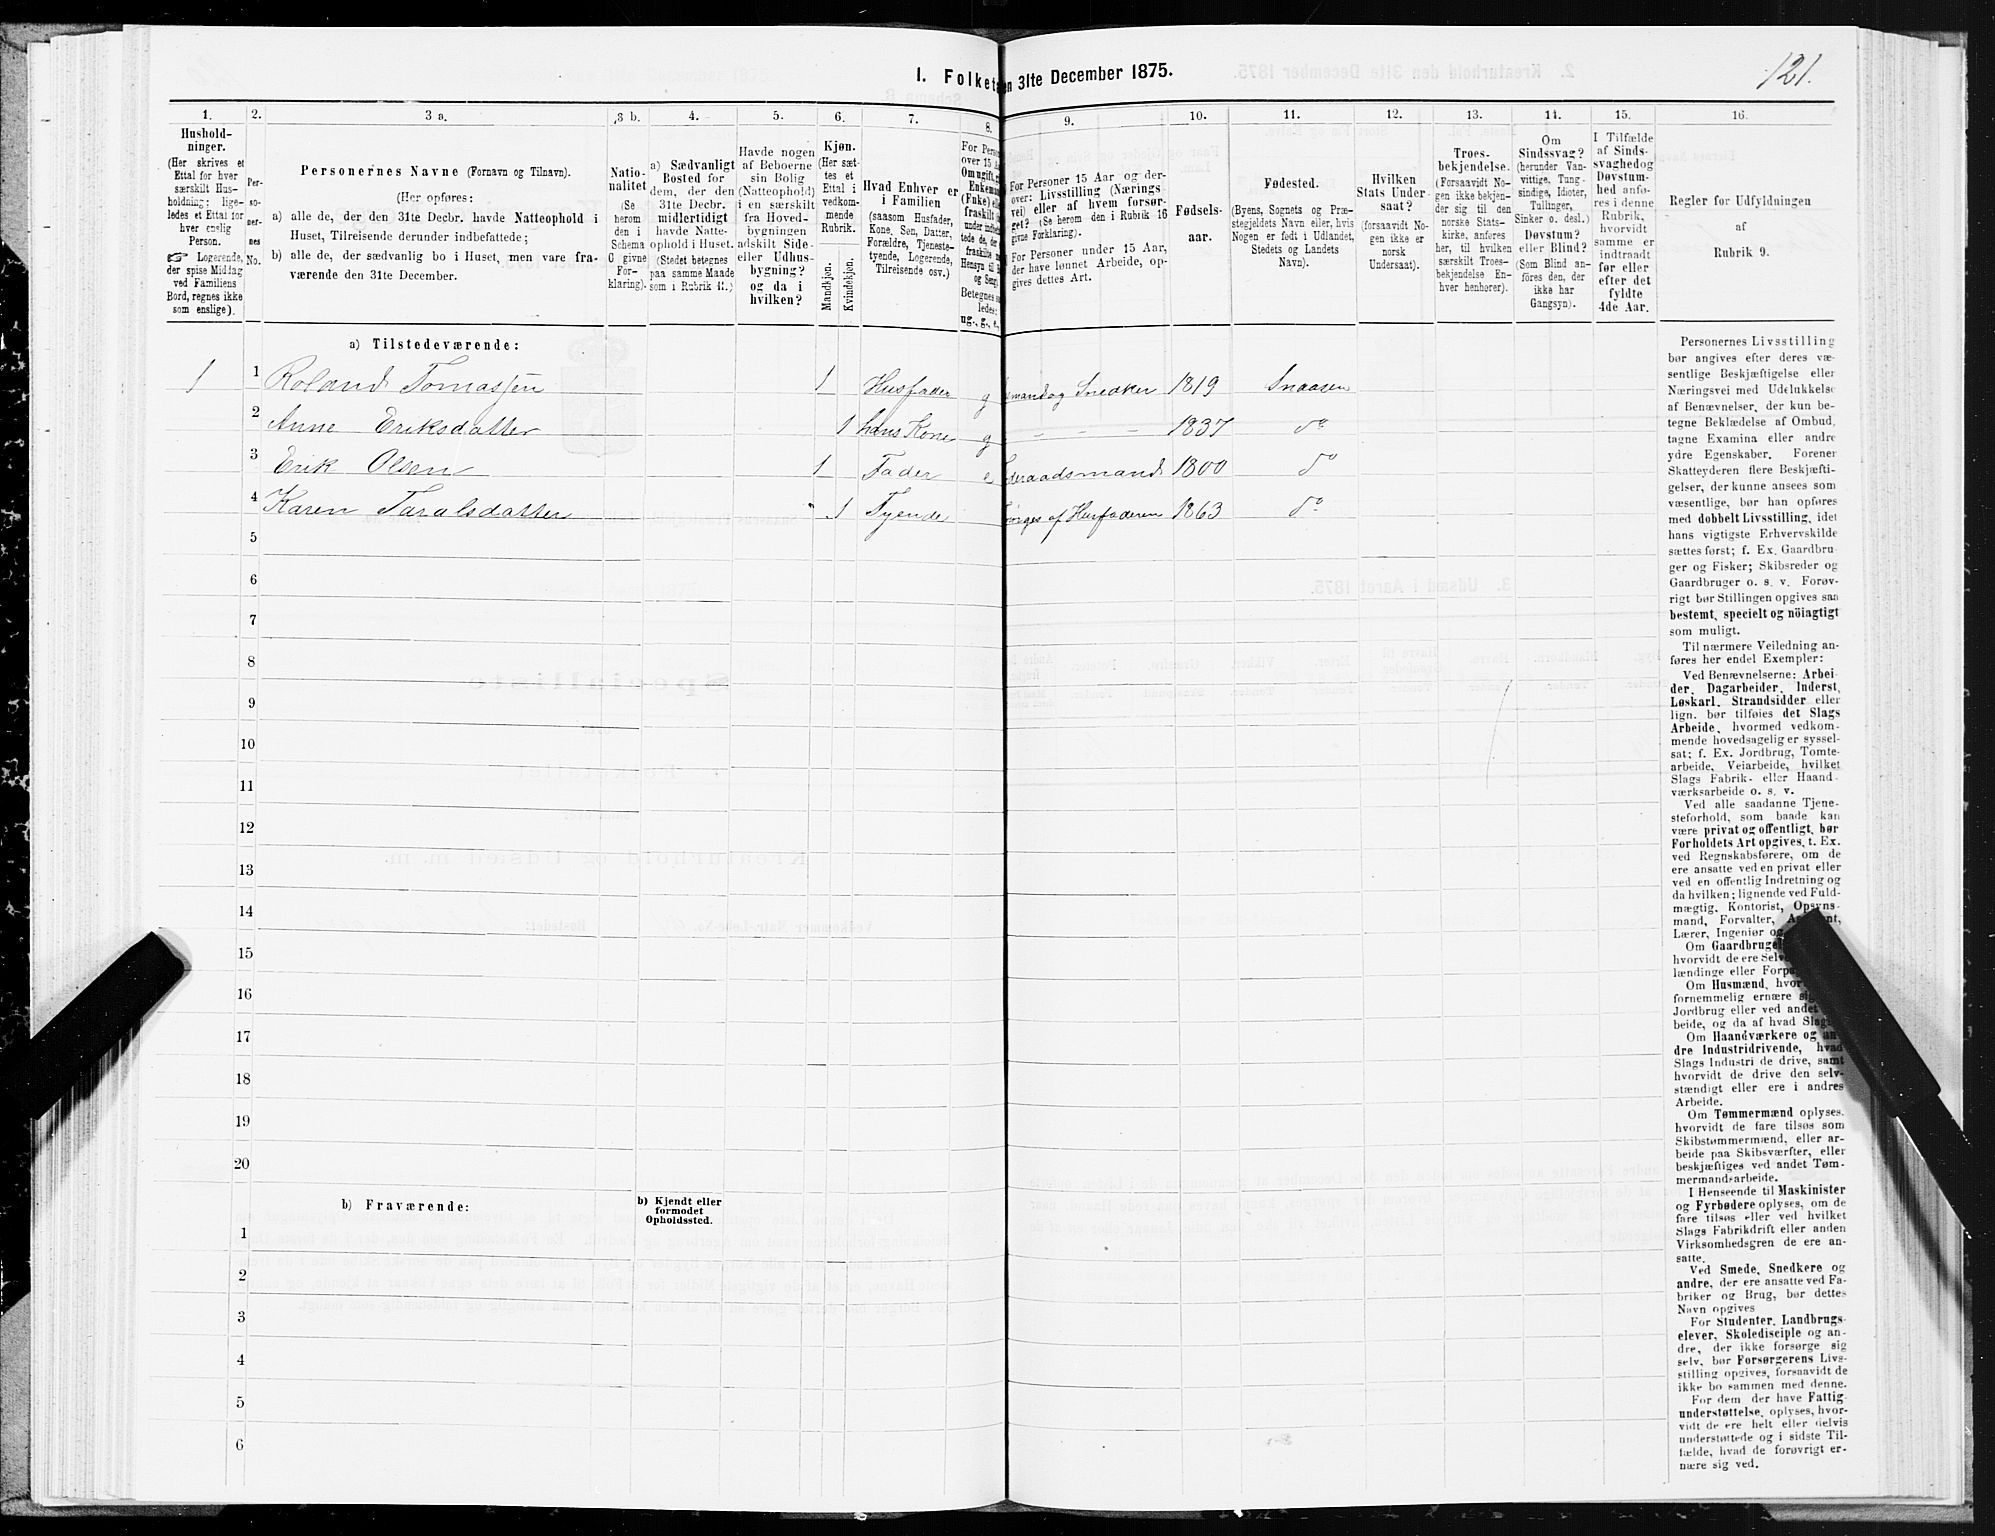 121.
I. Folketæ
en 31te December 1875.
1.
2.
3 a.
3 b.
4.
5.
6.
7.
8.
9.
10.
11.
12.
13.
14.
15.
16.
Hushold-
ninger.
(Her skrives et
Ettal for hver
særskilt Hus-
holdning; lige-
ledes et Ettal for
hver enslig
Person.
☞ Logerende,
der spise Middag
ved Familiens
Bord, regnes ikke
som enslige).
Per-
so-
ner-
nes
No.
Personernes Navne (Fornavn og Tilnavn).
(Her opføres:
a) alle de, der den 31te Decbr. havde Natteophold i
Huset, Tilreisende derunder indbefattede;
b) alle de, der sædvanlig bo i Huset, men vare fra-
værende den 31te December.
Natio-
nalitet
(Se
herom
den i
Schema
C givne
For-
klaring).
a) Sædvanligt
Bosted for
dem, der den
31te Decbr.
midlertidigt
havde Natte-
ophold i Huset.
(Stedet betegnes
paa samme Maade
som i Rubrik 11.)
Havde nogen
af Beboerne
sin Bolig
(Natteophold)
i en særskilt
fra Hoved-
bygningen
adskilt Side-
eller Udhus-
bygning?
og da i
hvilken?
Kjøn.
(Her sæt-
tes et
Ettal i
vedkom-
mende
Rubrik.
Mandkjøn.
Kvindekjøn.
Hvad Enhver er
i Familien
(saasom Husfader,
Kone, Søn, Datter,
Forældre, Tjeneste-
tyende, Logerende,
Tilreisende osv.)
For Pers
over 15 A
Om ugift, g
Enkema
(Fuke) elle
fraskilt
Hensyn til B
og Seng.
Betegnes s
ledes:
ug., g., e.,
For Personer 15 Aar og der-
over: Livsstilling (Nærings-
vei) eller af hvem forsør-
get? (Se herom den i Rubrik 16
givne Forklaring).
For Personer under 15 Aar,
der have lønnet Arbeide, op-
gives dettes Art.
Fødsels-
aar.
Fødested.
(Byens, Sognets og Præ-
stegjeldets Navn eller, hvis
Nogen er født i Udlandet,
Stedets og Landets
Navn).
Hvilken
Stats Under-
saat?
(forsaavidt No-
gen ikke er
norsk
Undersaat).
Troes-
bekjendelse.
(Forsaavidt No-
gen ikke bekjen-
der sig til den
norske Stats-
kirke, anføres
her, til hvilken
særskilt Troes-
bekjendelse En-
hver henhører).
Om
Sindssvag?
(herunder Van-
vittige, Tung-
sindige, Idioter,
Tullinger,
Sinker o. desl.)
Døvstum?
eller Blind?
(Som Blind an-
føres den, der
ikke har
Gangsyn).
I Tilfælde
af Sinds-
svaghedog
Døvstum-
hed anfø-
res i denne
Rubrik,
hvorvidt
samme er
indtraadt
før eller
efter det
fyldte
4de Aar.
Regler for Udfyldningen
af
Rubrik 9.
a) Tilstedeværende:
1 1 Roland Tomassen 1 Husfader g smand og Snedker 1819 Snaasen
2 Anne Eriksdatter 1 hans Kone g - - - 1837 do
3 Erik Olsen 1 Fader e deraadsmand 1800 do
4 Karen Taralsdatter 1 Tyende ørges af Husfaderen 1863 do
5
6
7
8
9
10
11
12
13
14
15
16
17
18
19
20
b) Fraværende:
b) Kjendt eller
formodet
Opholdssted.
1
2
3
4
5
6
Personernes Livsstilling
bør angives efter deres væ-
sentlige Beskjæftigelse eller
Næringsvei med Udelukkelse
af Benævnelser, der kun be-
tegne Beklædelse af Ombud,
tagne Examina eller andre
ydre Egenskaber. Forener
Skatteyderen flere Beskjæfti-
gelser, der kunne ansees som
væsentlige, bør han opføres
med dobbelt Livsstilling, idet
hans vigtigste Erhvervskilde
sættes først; f. Ex. Gaardbru-
ger og Fisker; Skibsreder og
Gaardbruger o. s. v. Forøv-
rigt bør Stillingen opgives saa
bestemt, specielt og nöiagtigt
som muligt.
Til nærmere Veiledning an-
føres her endel Exempler:
Ved Benævnelserne: Arbei-
der, Dagarbeider, Inderst,
Løskarl, Strandsidder eller
lign. bør tilføies det Slags
Arbeide, hvormed vedkom-
mende hovedsagelig er syssel-
sat; f. Ex. Jordbrug, Tomte-
arbeide, Veiarbeide, hvilket
Slags Fabrik- eller Haand-
værksarbeide o. s. v.
Ved alle saadanne Tjene-
steforhold, som baade kan
være privat og offentligt, bør
Forholdets Art opgives, t. Ex.
ved Regnskabsførere, om de
ere ansatte ved en privat eller
ved en offentlig Indretning og
da hvilken; lignende ved Fuld-
mægtig, Kontorist, Opsyns-
mand, Forvalter,
Lærer, Ingeniør
Om Gaardbruge
hvorvidt de ere Selv
lændinge eller Forp
Om Husmænd,
fornemmelig ernære
Jordbrug eller ved andet
beide, og da af hvad Slags
Om Haandværkere og an-
dre Industridrivende, hvad
Slags Industri de drive, samt
hvorvidt de drive den selv-
stændigt eller ere i andres
Arbeide.
Om Tømmermænd oplyses,
hvorvidt de fare tilsøs som
Skibstømmermænd, eller ar-
beide paa Skibsværfter, eller
beskjæftiges ved andet Tøm-
mermandsarbeide.
I Henseende til Maskinister
og Fyrbødere oplyses, om de
fare tilsøs eller ved hvilket
Slags Fabrikdrift eller anden
Virksomhedsgren de ere an-
satte.
Ved Smede, Snedkere og
andre, der ere ansatte ved Fa-
briker og Brug, bør dettes
Navn opgives
For Studenter, Landbrugs-
elever, Skoledisciple og an-
dre, der ikke forsørge sig
selv, bør Forsørgerens Livs-
stilling opgives, forsaavidt de
ikke bo sammen med denne.
For dem, der have Fattig-
understøttelse, oplyses, hvor-
vidt de ere helt eller delvis
understøttede og i sidste Til-
fælde, hvad de forøvrigt er-
nære sig ved.